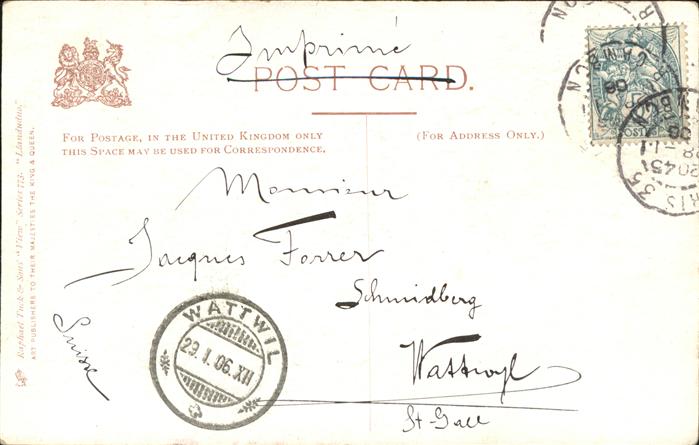 Imprimé
POST CARD.
FOR POSTAGE, IN THE UNITED KINGDOM ONLY
THIS SPACE MAY BE USED FOR CORRESPONDENCE.
(FOR ADDRESS ONLY.)
Monsieur
Jacques Forrer
Schmidberg
Wattwyl
St-Gall
Suisse
WATTWIL
29.I.06.XII
Raphael Tuck & Sons' "View" Series 773. "Llandudno."
ART PUBLISHERS TO THEIR MAJESTIES THE KING & QUEEN.
POSTES